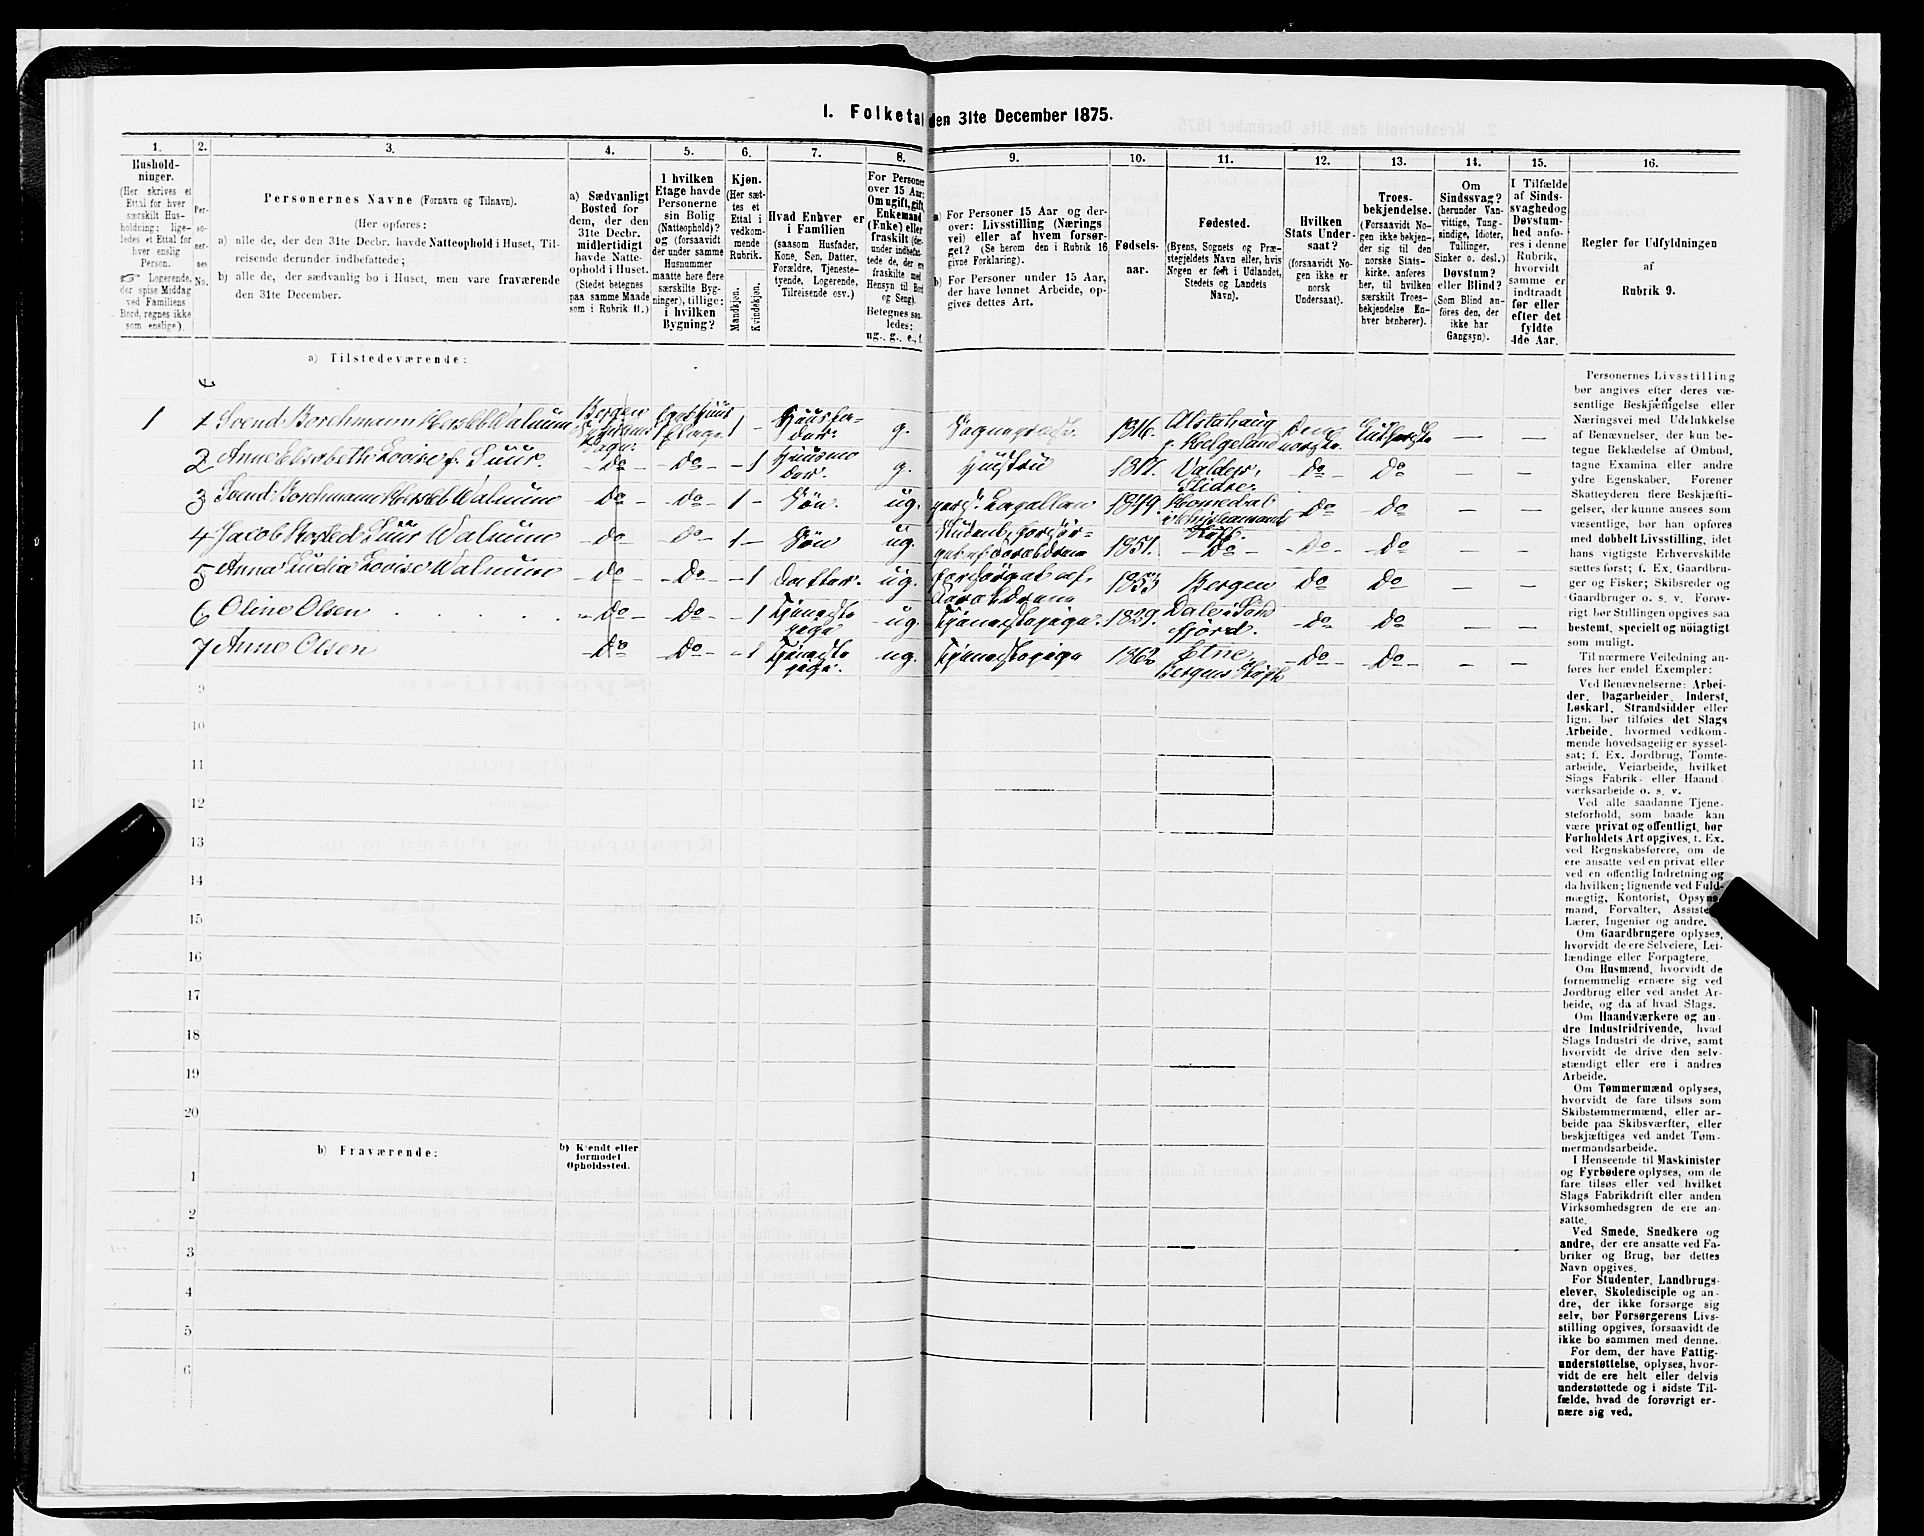 1. Folketal den 31te December 1875.
1.
Hushold-
ninger.
(Her skrives et
Ettal for hver
særskilt Hus-
holdning; lige-
ledes et Ettal for
hver enslig
Person.
☞ Logerende,
der spise Middag
ved Familiens
Bord, regnes ikke
som enslige).
2.
Per-
so-
ner-
nes
No.
3.
Personernes Navne (Fornavn og Tilnavn).
(Her opføres:
a) alle de, der den 31te Decbr. havde Natteophold i Huset, Til-
reisende derunder indbefattede;
b) alle de, der sædvanlig bo i Huset, men vare fraværende
den 31te December.
4.
a) Sædvanligt
Bosted for
dem, der den
31te Decbr.
midlertidigt
havde Natte-
ophold i Huset.
(Stedet betegnes
paa samme Maade
som i Rubrik 11.)
5.
I hvilken
Etage havde
Personerne
sin Bolig
(Natteophold)?
og (forsaavidt
der under samme
Husnummer
maatte høre flere
særskilte Byg-
ninger), tillige:
i hvilken
Bygning?
6.
Kjøn.
(Her sæt-
tes et
Ettal i
vedkom-
mende
Rubrik.
Mandkjøn.
Kvindekjøn.
7.
Hvad Enhver er
i Familien
(saasom Husfader,
Kone, Søn, Datter,
Forældre, Tjeneste-
tyende, Logerende,
Tilreisende osv.)
8.
For Personer
over 15 Aar:
Om ugift, gift,
Enkemand
(Enke) eller
fraskilt (der-
under indbefat-
tede de, der ere
fraskilte med
Hensyn til Bord
og Seng).
Betegnes saa-
ledes:
ug., g., e., f.
9.
a) For Personer 15 Aar og der-
over: Livsstilling (Nærings
vei) eller af hvem forsør-
get? (Se herom den i Rubrik 16
givne Forklaring).
b) For Personer under 15 Aar,
der have lønnet Arbeide, op-
gives dettes Art.
10.
Fødsels-
aar.
11.
Fødested.
(Byens, Sognets og Præ-
stegjeldets Navn eller, hvis
Nogen er født i Udlandet,
Stedets og Landets
Navn).
12.
Hvilken
Stats Under-
saat?
(forsaavidt No-
gen ikke er
norsk
Undersaat).
13.
Troes-
bekjendelse.
(Forsaavidt No-
gen ikke bekjen-
der sig til den
norske Stats-
kirke, anføres
her, til hvilken
særskilt Troes-
bekjendelse En-
hver henhører).
14.
Om
Sindssvag?
(herunder Van-
vittige, Tung-
sindige, Idioter,
Tullinger,
Sinker o. desl.)
Døvstum?
eller Blind?
(Som Blind an-
føres den, der
ikke har
Gangsyn).
15.
I Tilfælde
af Sinds-
svaghed og
Døvstum-
hed anfø-
res i denne
Rubrik,
hvorvidt
samme er
indtraadt
før eller
efter det
fyldte
4de Aar.
16.
Regler for Udfyldningen
af
Rubrik 9.
a) Tilstedeværende:
1 1 Svend Borchmann Hersleb Walnum Bergen 1 – g. 1816. Alstahaug Lutherske – –
p. Helgeland
2 Anne Elisabeth Lovise f. Luur. –do– –Do– – 1 g. Hustru 1817. Valders, Do Do – –
Slidre
3 Svend Borchmann Hersleb Walnum –do– –do– 1 – Søn. ug. 1849. Do –do– – –
4 Jacob Rosted Luur Walnum –do– –Do– 1 – Søn ug. 1851. –Do– –Do– –do– – –
5 Anna Ludia Lovise Walnum –do– –Do– – 1 Datter. ug. forsørget af 1853 Bergen Do Do – –
Forældrene
6 Oline Olsen –do– –do– – 1 Tjeneste ug. Tjenestepige. 1839. Dale i Sønd –do– –do– – –
pige fjord.
7 Anne Olsen –do– –Do– – 1 Tjeneste ug. Tjenestepige 1862 Etne –do– –do– – –
pige. Bergens Stift
9
10
11
12
13
14
15
16
17
18
19
20
b) Fraværende:
b) Kjendt eller
formodet
Opholdssted.
1
2
3
4
5
6
Personernes Livsstilling
bør angives efter deres væ-
sentlige Beskjæftigelse eller
Næringsvei med Udelukkelse
af Benævnelser, der kun be-
tegne Beklædelse af Ombud,
tagne Examina eller andre
ydre Egenskaber. Forener
Skatteyderen flere Beskjæfti-
gelser, der kunne ansees som
væsentlige, bør han opføres
med dobbelt Livsstilling, idet
hans vigtigste Erhvervskilde
sættes først; f. Ex. Gaardbru-
ger og Fisker; Skibsreder og
Gaardbruger o. s. v. Forøv-
rigt bør Stillingen opgives saa
bestemt, specielt og nøiagtigt
som muligt.
Til nærmere Veiledning an-
føres her endel Exempler:
Ved Benævnelserne: Arbei-
der, Dagarbeider, Inderst,
Løskarl, Strandsidder eller
lign. bør tilføies det Slags
Arbeide, hvormed vedkom-
mende hovedsagelig er syssel-
sat; f. Ex. Jordbrug, Tomte-
arbeide, Veiarbeide, hvilket
Slags Fabrik- eller Haand-
værksarbeide o. s. v.
Ved alle saadanne Tjene-
steforhold, som baade kan
være privat og offentligt, bør
Forholdets Art opgives, f. Ex.
ved Regnskabsførere, om de
ere ansatte ved en privat eller
ved en offentlig Indretning og
da hvilken; lignende ved Fuld-
mægtig, Kontorist, Opsyns-
mand, Forvalter, Assistent,
Lærer, Ingeniør og andre.
Om Gaardbrugere oplyses,
hvorvidt de ere Selveiere, Lei-
lændinge eller Forpagtere.
Om Husmænd, hvorvidt de
fornemmelig ernære sig ved
Jordbrug eller ved andet Ar-
beide, og da af hvad Slags.
Om Haandværkere og an-
dre Industridrivende, hvad
Slags Industri de drive, samt
hvorvidt de drive den selv-
stændigt eller ere i andres
Arbeide.
Om Tømmermænd oplyses,
hvorvidt de fare tilsøs som
Skibstømmermænd, eller ar-
beide paa Skibsværfter, eller
beskjæftiges ved andet Tøm-
mermandsarbeide.
I Henseende til Maskinister
og Fyrbødere oplyses, om de
fare tilsøs eller ved hvilket
Slags Fabrikdrift eller anden
Virksomhedsgren de ere an-
satte.
Ved Smede, Snedkere og
andre, der ere ansatte ved Fa-
briker og Brug, bør dettes
Navn opgives.
For Studenter, Landbrugs-
elever, Skoledisciple og an-
dre, der ikke forsørge sig
selv, bør Forsørgerens Livs-
stilling opgives, forsaavidt de
ikke bo sammen med denne.
For dem, der have Fattig-
understøttelse, oplyses, hvor-
vidt de ere helt eller delvis
understøttede og i sidste Til-
fælde, hvad de forøvrigt er-
nære sig ved.